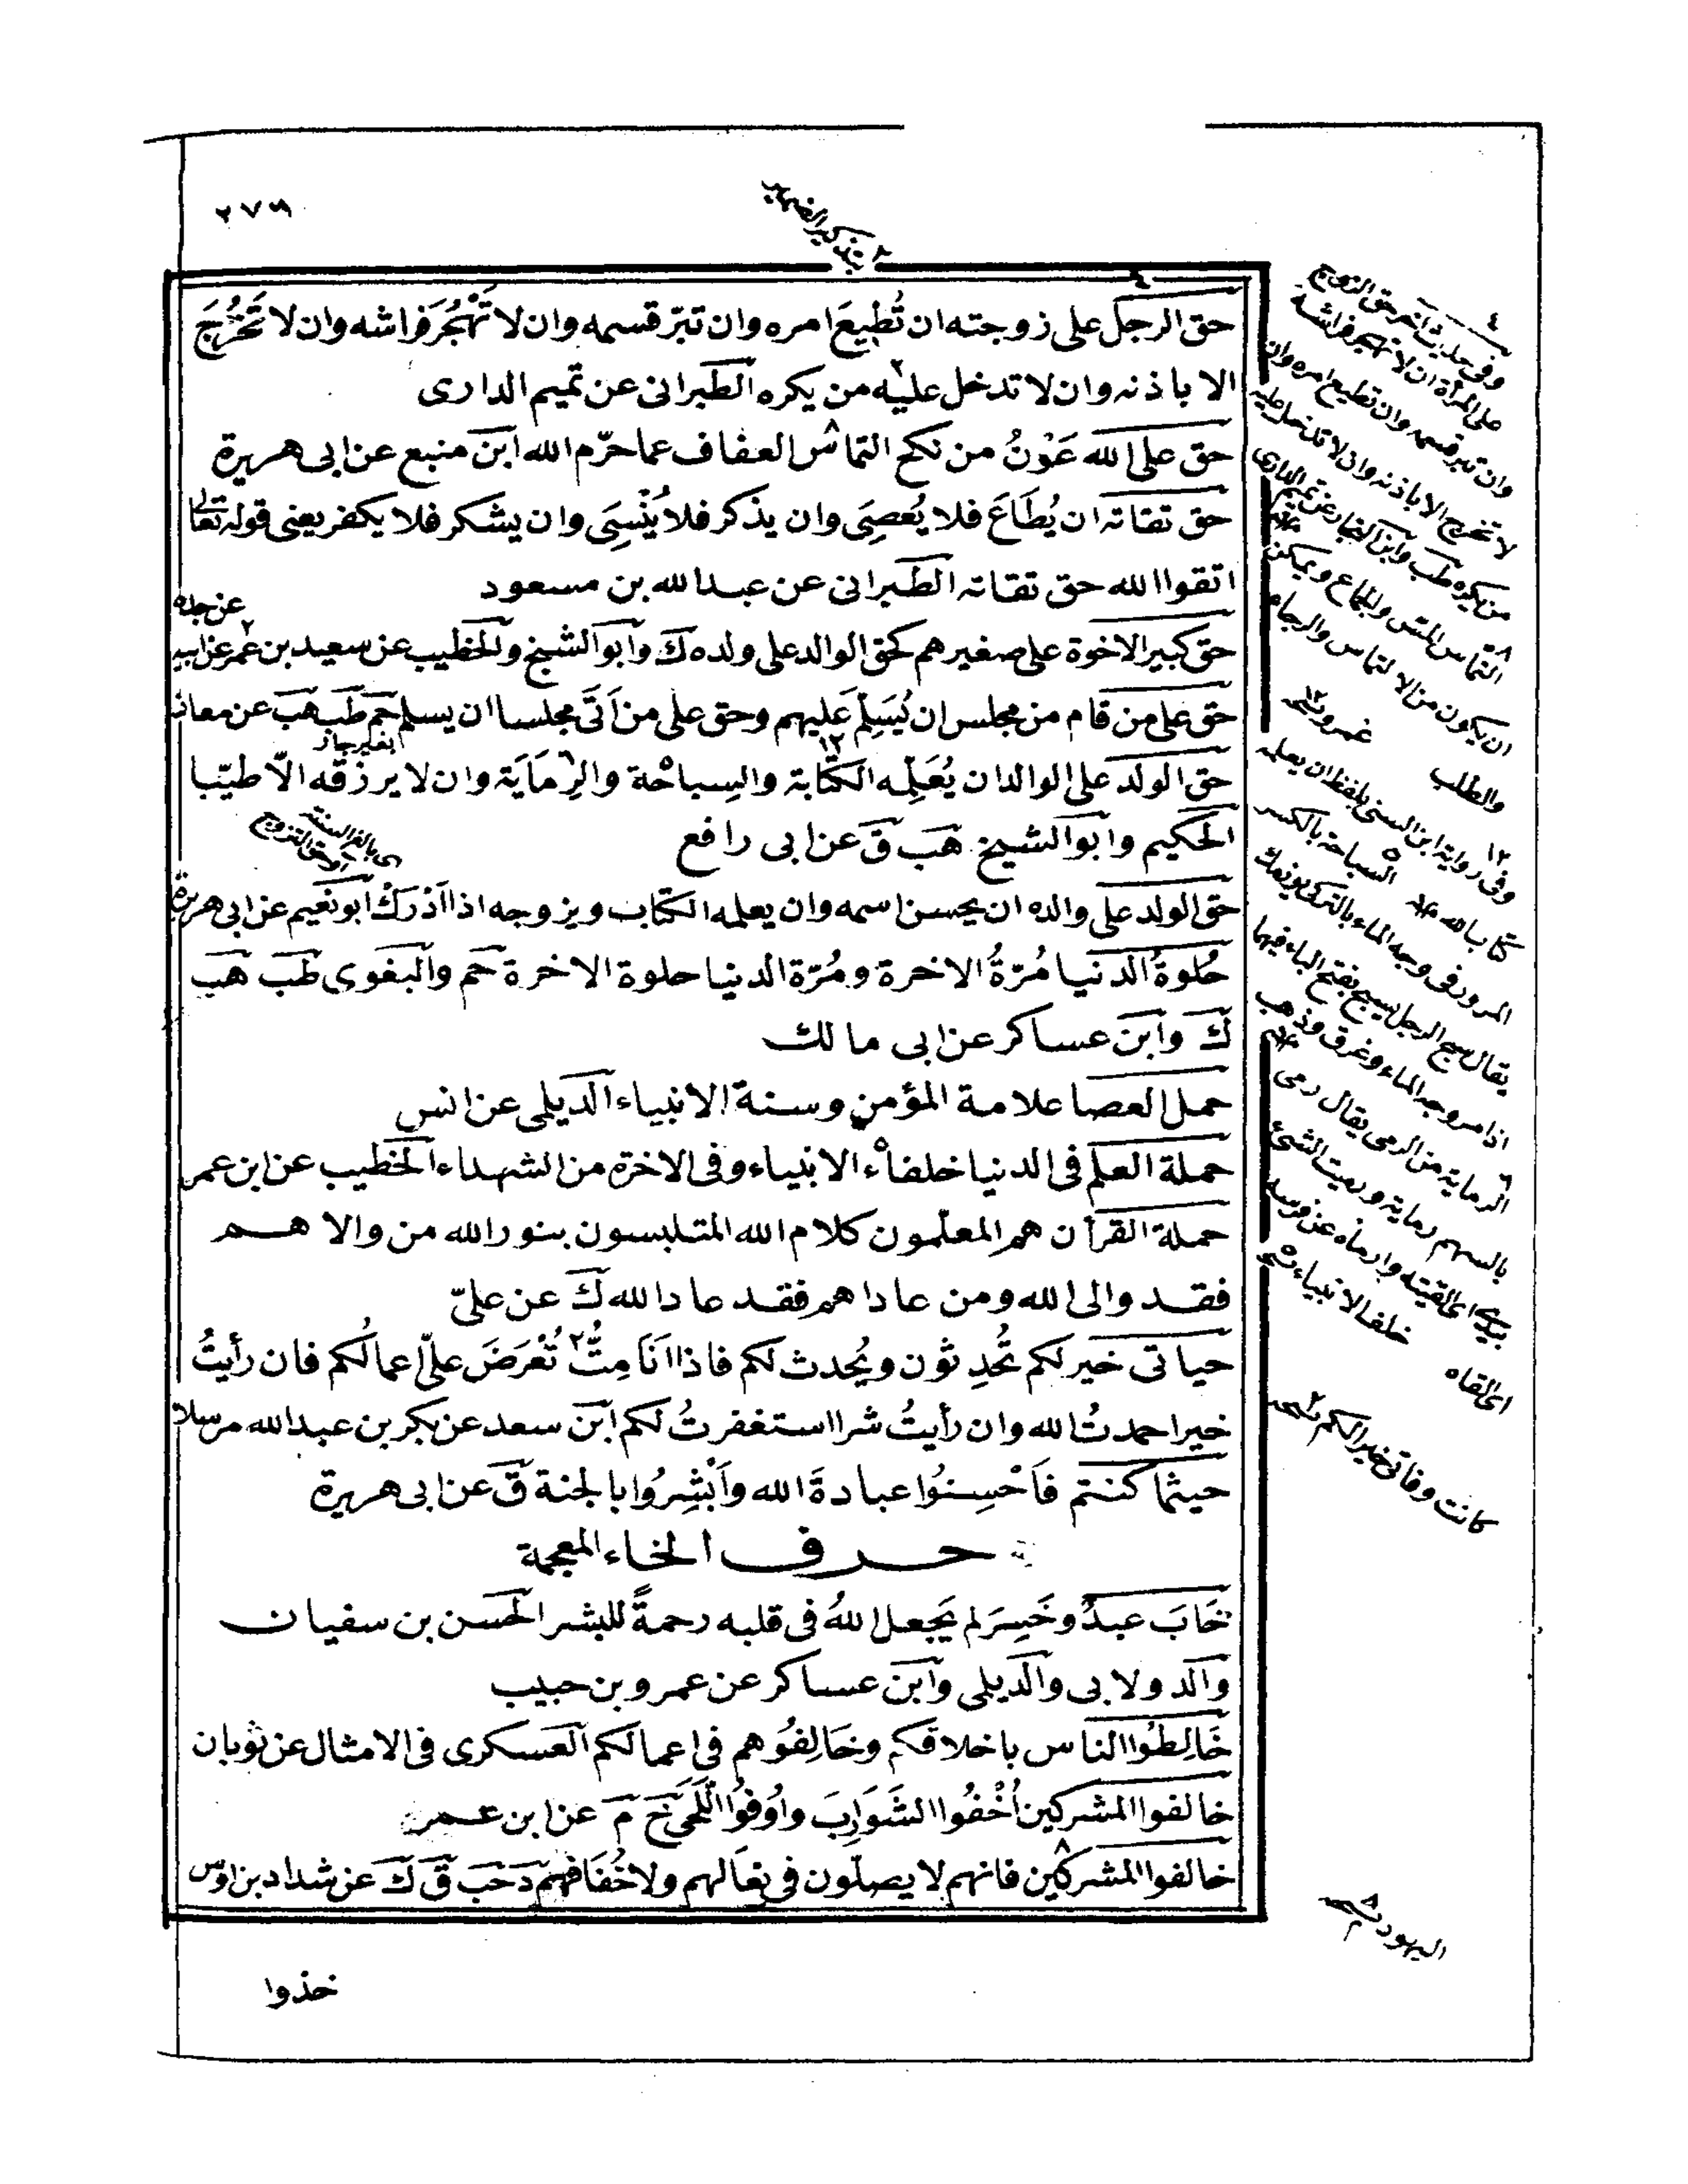 ٢٧٦
حق الرجل على زوجته ان تُطِيعَ امره وان تبرّ قسمه وان لا تَهْجُرَ فراشه وان لا تَخْرُجَ
الا باذنه وان لا تدخل عليه من يكره الطبرانى عن تميم الدارى
حق على الله عَوْنُ من نكح التماس العفاف عما حرّم الله ابن منبع عن ابى هريرة
حق تقاته ان يُطَاعَ فلا يُعصِىَ وان يذكر فلا يُنْسِىَ وان يشكر فلا يكفر يعنى قوله تعالى
اتقوا الله حق تقاته الطبرانى عن عبد الله بن مسعود
عن جده
حق كبير الاخوة على صغيرهم كحق الوالد على ولده ك وابو الشيخ والخطيب عن سعيد بن عمر عن ابيه
حق على من قام من مجلس ان يُسَلِّمَ عَليهم وحق على من أتَى مجلسا ان يسلم حم طب هب عن معاذ
حق الولد على الوالد ان يُعَلِّمه الكتابة والسِباحْة والرِمَايَة وان لا يرزقه الاّ طيّبا
الحكيم وابو الشيخ هب ق عن ابى رافع
حق الولد على والده ان يحسن اسمه وان يعلمه الكتاب ويزوجه اذا اَدْرَكَ ابو نعيم عن ابى هريرة
حُلوةُ الدنيا مُرّةُ الاخرة ومُرّة الدنيا حلوة الاخرة حم والبغوى طب هب
ك وابن عساكر عن ابى مالك
حمل العصا علامة المؤمن وسنة الانبياء الديلى عن انس
حملة العلم فى الدنيا خلفاء الانبياء وفى الاخرة من الشهداء الخطيب عن ابن عمر
حملة القرأن هم المعلّمون كلام الله المتلبسون بنور الله من والاهم
فقد والى الله ومن عاداهم فقد عادا الله ك عن علىّ
حياتى خير لكم تُحَدِثون ويُحدث لكم فاذا انَا مِتُّ تُعْرَضَ علىّ اعمالُكم فان رأيتُ
خيرا حمدتُ الله وان رأيتُ شرا استغفرتُ لكم ابن سعد عن بكر بن عبد الله مرسلا
حيثما كنتم فَاَحْسِنُوا عبادةَ الله واَبْشِرُوا بالجنة ق عن ابى هريرة
حرف الخاء المعجمة
خَابَ عبدٌ وخَسِرَ لم يَجعل اللهُ فى قلبه رحمةً للبشر الحسن بن سفيان
والدولابى والديلى وابن عساكر عن عمرو بن حبيب
خَالِطُوا الناس باخلاقكم وخَالِفُوهم فى اعمالكم العسكرى فى الامثال عن ثوبان
خالفوا المشركين اُحْفُوا الشَوَارِبَ واُوفُوا اللّحَى خ م عن ابن عمر
خالفوا المشركين فانهم لا يصلّون فى نِعَالهم ولا خُفَافهم د حب ق ك عن شداد بن اوس
خذوا
وفى حديث آخر حق الزوج
على المرأة ان لا تهجر فراشه
وان تبر قسمه وان تطيع امره وان
لا تخرج الا باذنه وان لا تدخل عليه
من يكره طب وابن النجار عن تميم الدارى
ان يكون من الالتماس والرجاء
والطلب
وفى رواية ابن السنى بلفظ ان يعلمه
كتاب الله
السباحة بالكسر
المرور فى وجه الماء بالتركى
يقال سبح الرجل يسبح بفتح الباء فيهما
اذا مر وجه الماء وغرق وذهب
الرماية من الرمى يقال رمى
بالسهم رماية ورميت الشئ
بيدى اى القيته وارماه عن فرسه
اى القاه
خلفا الانبياء
كانت وفاتى خيرا لكم
اليهود